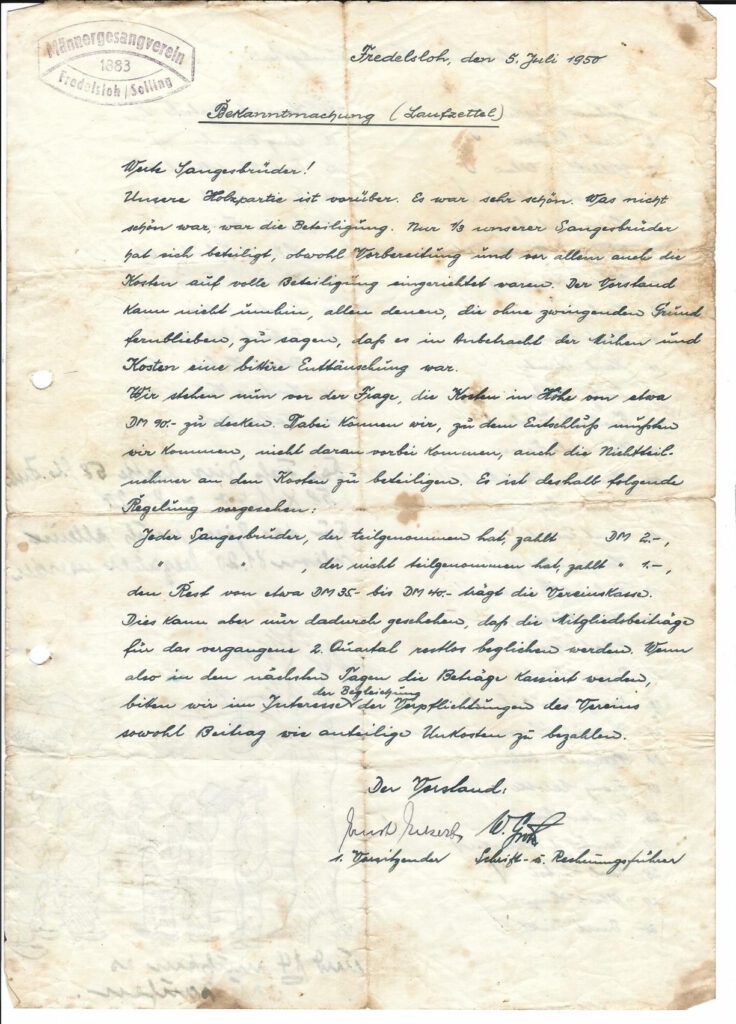 Männergesangverein
1883
Fredelsloh/Solling
Fredelsloh, den 5. Juli 1950
Bekanntmachung (Laufzettel)
Werte Sangesbrüder!
Unsere Holzpartie ist vorüber. Es war sehr schön. Was nicht
schön war, war die Beteiligung. Nur 1/3 unserer Sangesbrüder
hat sich beteiligt, obwohl Vorbereitung und vor allem auch die
Kosten auf volle Beteiligung eingerichtet waren. Der Vorstand
kann nicht umhin, allen denen, die ohne zwingenden Grund
fernblieben, zu sagen, daß es in Anbetracht der Mühen und
Kosten eine bittere Enttäuschung war.
Wir stehen nun vor der Frage, die Kosten in Höhe von etwa
DM 90.- zu decken. Dabei können wir, zu dem Entschluß mußten
wir kommen, nicht daran vorbei kommen, auch die Nichtteil-
nehmer an den Kosten zu beteiligen. Es ist deshalb folgende
Regelung vorgesehen:
Jeder Sangesbrüder, der teilgenommen hat, zahlt DM 2.-,
" " , der nicht teilgenommen hat, zahlt " 1.-,
den Rest von etwa DM 35.- bis DM 40.- trägt die Vereinskasse.
Dies kann aber nur dadurch geschehen, daß die Mitgliedsbeiträge
für das vergangene 2. Quartal restlos beglichen werden. Wenn
also in den nächsten Tagen die Beträge kassiert werden,
bitten wir im Interesse der Begleichung der Verpflichtungen des Vereins
sowohl Beitrag wie anteilige Unkosten zu bezahlen.
Der Vorstand:
W.
1. Vorsitzender Schrift- u. Rechnungsführer